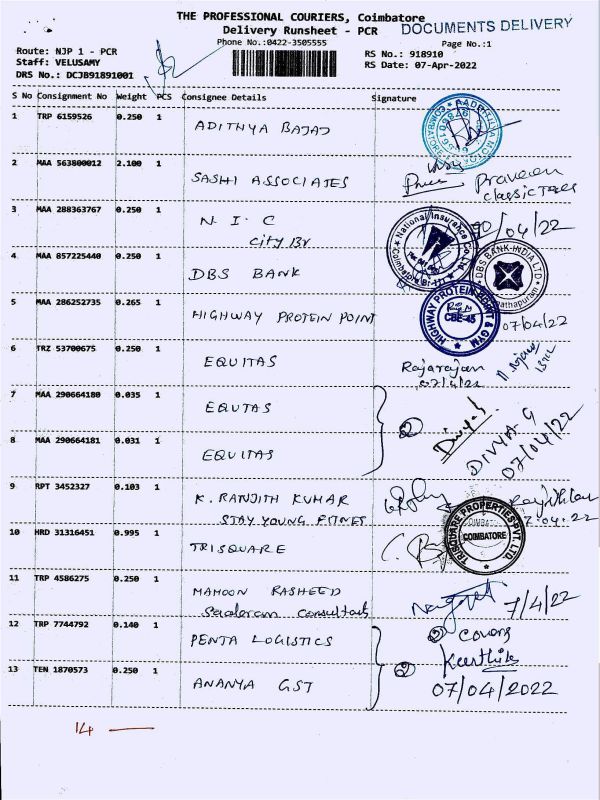 THE PROFESSIONAL COURIERS, Coimbatore
Delivery Runsheet - PCR
DOCUMENTS DELIVERY
Phone No.:0422-3505555
Page No.:1
Route: NJP 1 - PCR
RS No.: 918910
Staff: VELUSAMY
RS Date: 07-Apr-2022
DRS No.: DCJB91891001
S No Consignment No Weight PCS Consignee Details Signature
1 TRP 6159526 0.250 1 ADITHYA BAJAJ
2 MAA 563800012 2.100 1 SASHI ASSOCIATES Praveen
3 MAA 288363767 0.250 1 N. I. C
City Br
National Insurance Co. Ltd.
Coimbatore
/04/22
4 MAA 857225440 0.250 1 DBS BANK
DBS BANK INDIA LTD
5 MAA 286252735 0.265 1 HIGHWAY PROTEIN POINT
HIGHWAY PROTEIN POINT & GYM
CBE-45
07/04/22
6 TRZ 53700675 0.250 1 EQUITAS Rajarajan
07/4/22
7 MAA 290664180 0.035 1 EQUTAS
② Divya G DIVYA G
07/04/22
8 MAA 290664181 0.031 1 EQUITAS
9 RPT 3452327 0.103 1 K. RANJITH KUMAR
STAY YOUNG FITNES
7.04.22
10 HRD 31316451 0.995 1 TRISQUARE
TRISQUARE PROPERTIES PVT. LTD.
COIMBATORE
11 TRP 4586275 0.250 1 MAHOON RASHEED
7/4/22
12 TRP 7744792 0.140 1 PENTA LOGISTICS
② Covers
Keerthik
13 TEN 1870573 0.250 1 ANANYA GST
②
07/04/2022
14 —